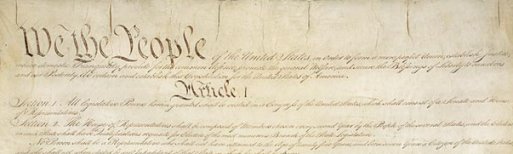 We the People of the United States, in Order to form a more perfect Union, establish Justice,
insure domestic Tranquility, provide for the common defence, promote the general Welfare, and secure the Blessings of Liberty to ourselves
and our Posterity, do ordain and establish this Constitution for the United States of America.
Article I
Section 1. All legislative Powers herein granted shall be vested in a Congress of the United States, which shall consist of a Senate and House
of Representatives.
Section 2. The House of Representatives shall be composed of Members chosen every second Year by the People of the several States, and the Electors
in each State shall have Qualifications requisite for Electors of the most numerous Branch of the State Legislature.
No Person shall be a Representative who shall not have attained to the Age of twenty five Years, and been seven Years a Citizen of the United States,